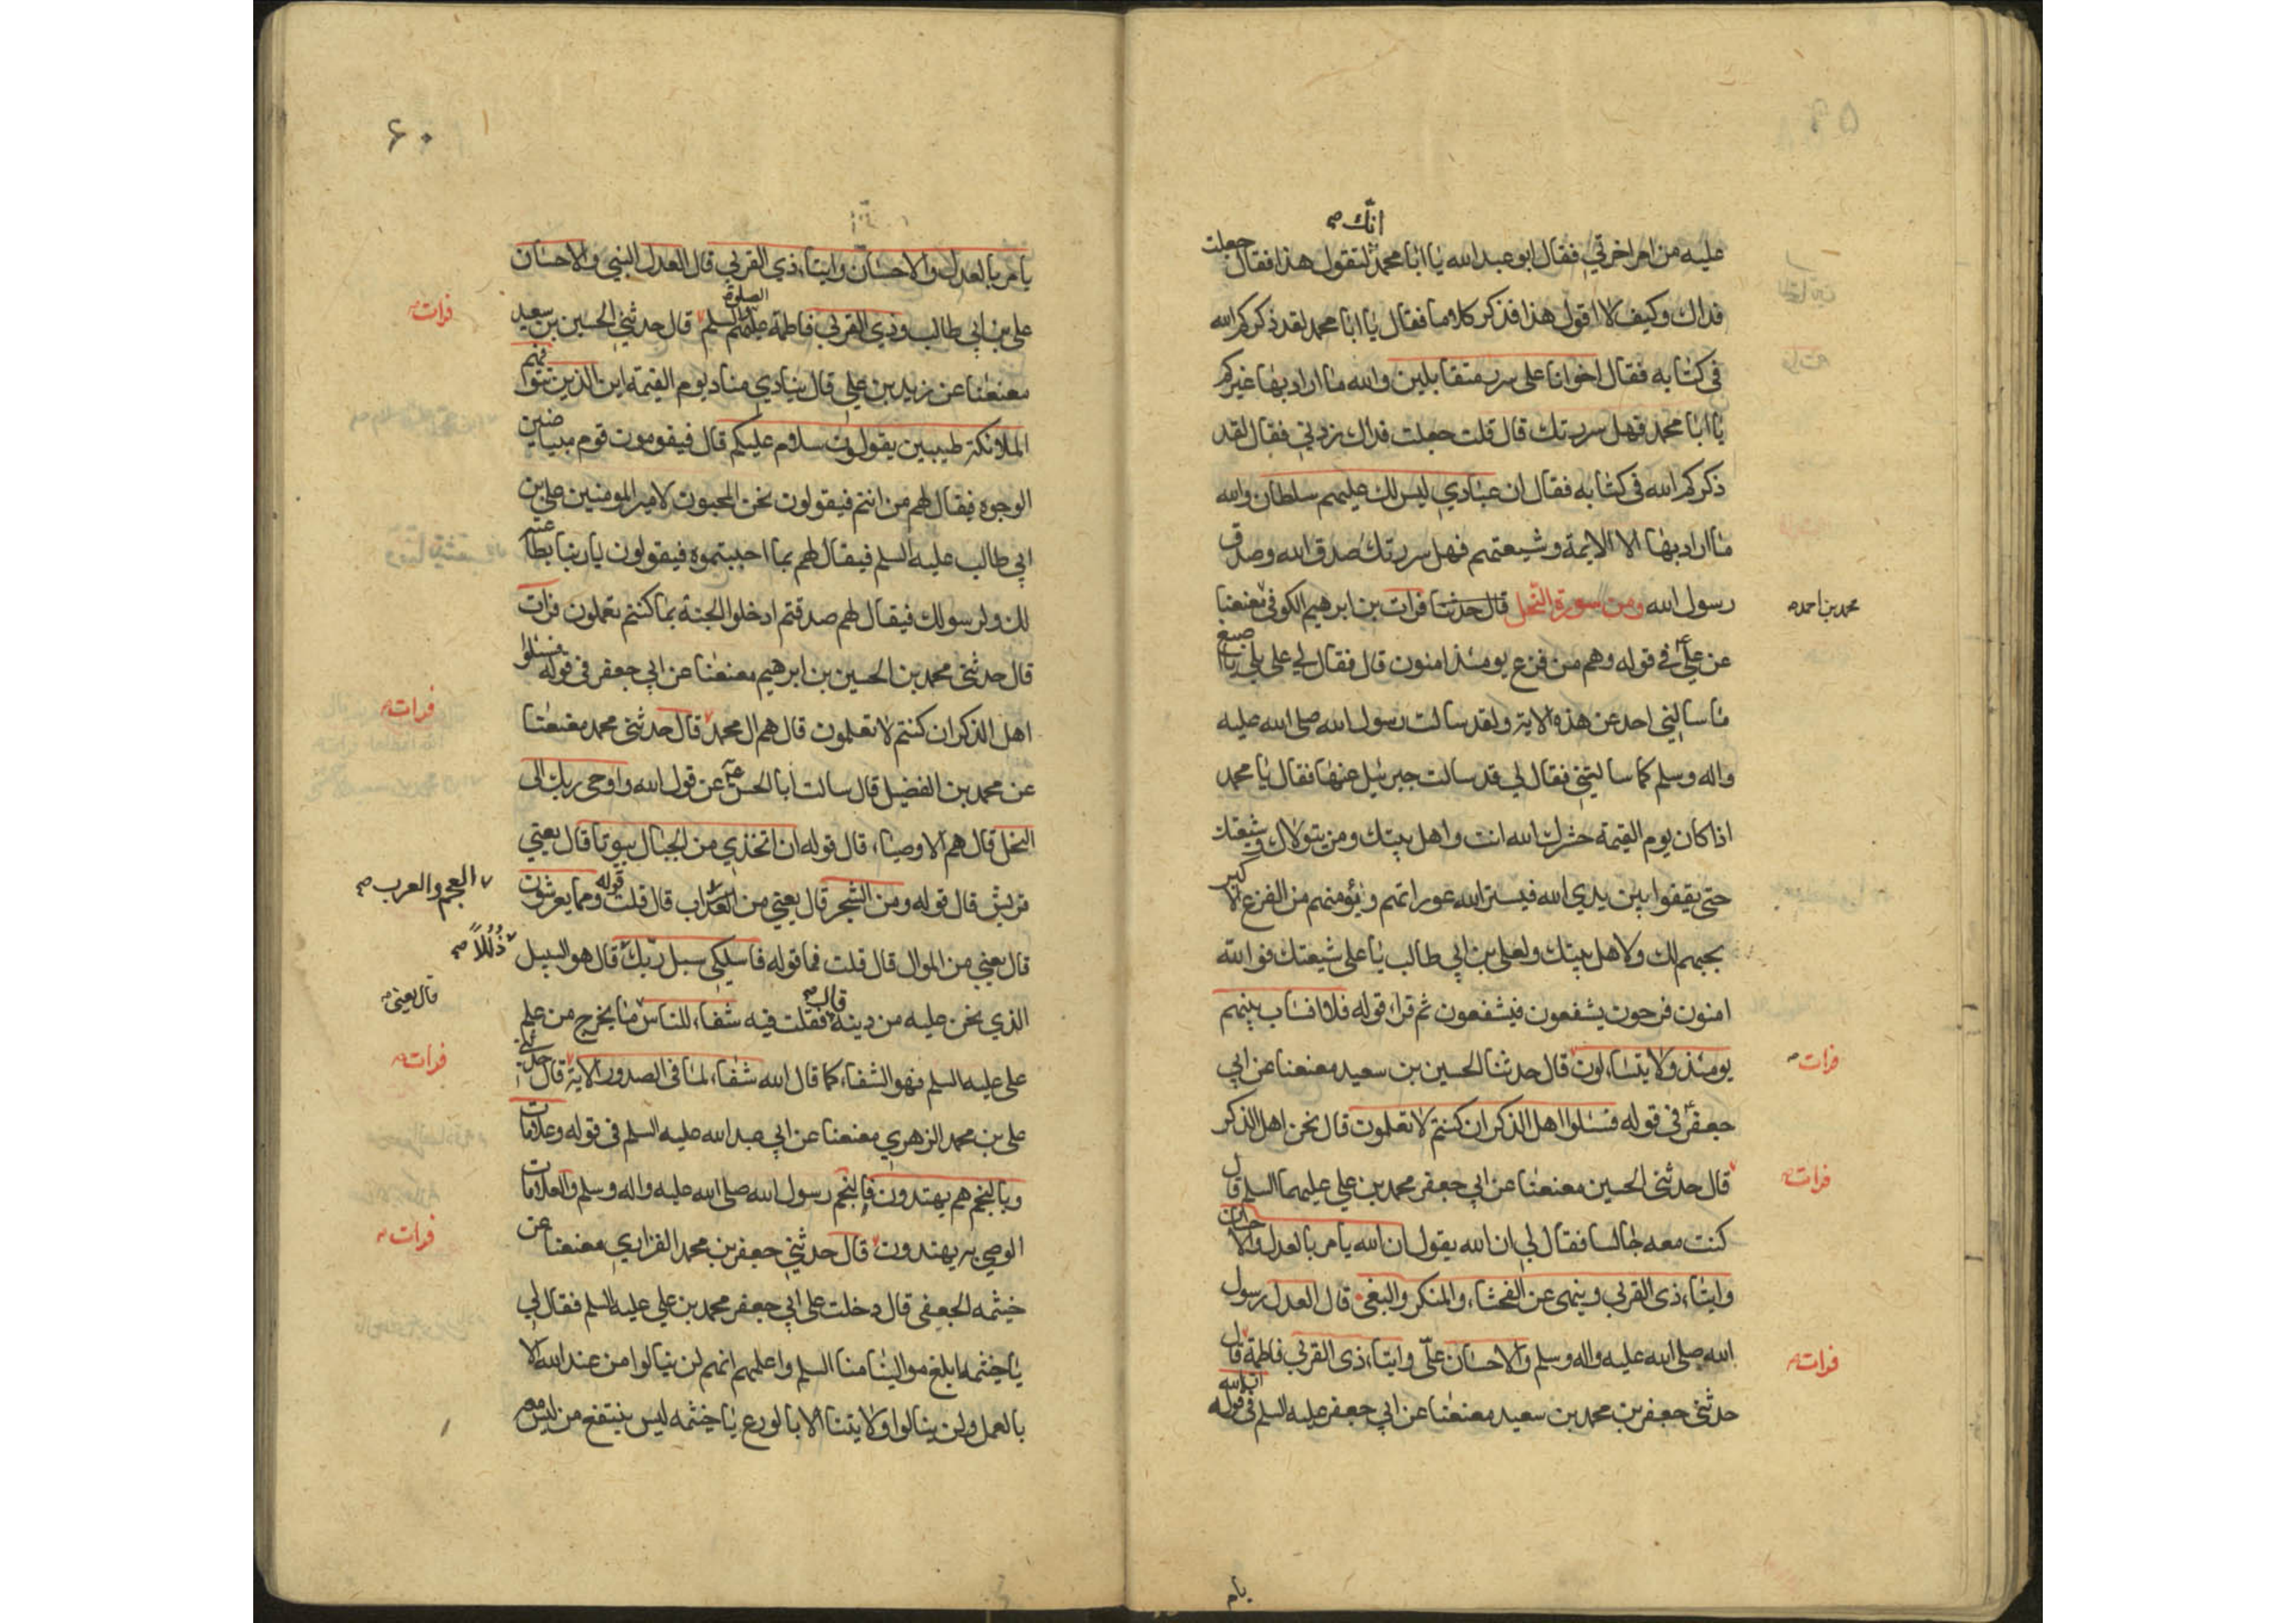 انك صح
عليه من امر اخرتي فقال ابو عبد الله يا ابا محمد لتقول هذا فقال جعلت
فداك وكيف لا اقول هذا فذكر كلاما فقال يا ابا محمد لقد ذكركم الله
في كتابه فقال اخوانا على سرر متقابلين والله ما اراد بها غيركم
يا ابا محمد فهل سررتك قال قلت جعلت فداك زدني فقال لقد
ذكركم الله في كتابه فقال ان عبادي ليس لك عليهم سلطان والله
ما اراد بها الا الايمة وشيعتهم فهل سررتك صدق الله وصدق
رسول الله ومن سورة النحل قال حدثنا فرات بن ابرهيم الكوفي معنعنا
محمد بن احمد صح
عن علي ع في قوله وهم من فزع يومئذ امنون قال فقال لي علي بلي يا اصبغ
ما سالني احد عن هذه الاية ولقد سالت رسول الله صلى الله عليه
واله وسلم كما سالتني فقال لي قد سالت جبرئيل عنها فقال يا محمد
اذا كان يوم القيمة حشرك الله انت واهل بيتك ومن يتولاك وشيعتك
حتى يقفوا بين يدي الله فيستر الله عوراتهم ويؤمنهم من الفزع الاكبر
بحبهم لك ولاهل بيتك ولعلي بن ابي طالب يا علي شيعتك فوالله
امنون فرحون يشفعون فيشفعون ثم قراء قوله فلا انساب بينهم
يومئذ ولا يتساءلون قال حدثنا الحسين بن سعيد معنعنا عن ابي
فرات صح
جعفر ع في قوله فسئلوا اهل الذكر ان كنتم لا تعلمون قال نحن اهل الذكر
قال حدثني الحسين معنعنا عن ابي جعفر محمد بن علي عليهما السلم قال
فرات صح
كنت معه جالسا فقال لي ان الله يقول ان الله يامر بالعدل والاحسان
وايتاء ذى القربى وينهى عن الفحشاء والمنكر والبغى قال العدل رسول
الله صلى الله عليه واله وسلم والاحسان علي وايتاء ذى القربي فاطمة قال
فرات صح
حدثني جعفر بن محمد بن سعيد معنعنا عن ابي جعفر عليه السلم في قوله ان الله
يام
٦٠
يامر بالعدل والاحسان وايتاء ذي القربي قال العدل النبي والاحسان
علي بن ابي طالب وذي القربي فاطمة عليهم الصلوة والسلم قال حدثني الحسين بن سعيد
فرات صح
معنعنا عن زيد بن علي قال ينادي مناد يوم القيمة اين الذين تتوفهم
الملائكة طيبين يقولون سلام عليكم قال فيقومون قوم مبياضين
الوجوه فيقال لهم من انتم فيقولون نحن المحبون لامير المومنين علي بن
ابي طالب عليه السلم فيقال لهم بما احببتموه فيقولون يا ربنا بطاعته
لك ولرسولك فيقال لهم صدقتم ادخلوا الجنة بما كنتم تعملون فرات
قال حدثني محمد بن الحسين بن ابرهيم معنعنا عن ابي جعفر في قوله فسئلوا
اهل الذكر ان كنتم لا تعلمون قال هم ال محمد قال حدثني محمد معنعنا
فرات صح
عن محمد بن الفضيل قال سالت ابا الحسن ع عن قول الله واوحى ربك الى
النحل قال هم الاوصياء قال قوله ان اتخذي من الجبال بيوتا قال يعني
قريش قال قوله ومن الشجر قال يعني من العرب قال قلت قوله ومما يعرشون
العجم والعرب صح
قال يعني من الموال قال قلت فما قوله فاسلكي سبل ربك قال هو السبيل
ذللا صح
الذي نحن عليه من دينه فقلت فيه شفاء للناس ما يخرج من علم
قال يعنى صح
علي عليه السلم فهو الشفاء كما قال الله شفاء لما في الصدور الاية قال حدثني
فرات صح
علي بن محمد الزهري معنعنا عن ابي عبد الله عليه السلم في قوله وعلامات
وبالنجم هم يهتدون فالنجم رسول الله صلى الله عليه واله وسلم والعلامات
الوصي به يهتدون قال حدثني جعفر بن محمد الفزاري معنعنا عن
فرات صح
خيثمه الجعفى قال دخلت على ابي جعفر محمد بن علي عليه السلم فقال لي
يا خيثمه ابلغ موالينا منا السلم واعلمهم انهم لن ينالوا من عند الله الا
بالعمل ولن ينالوا ولايتنا الا بالورع يا خيثمه ليس ينتفع من ليس معه